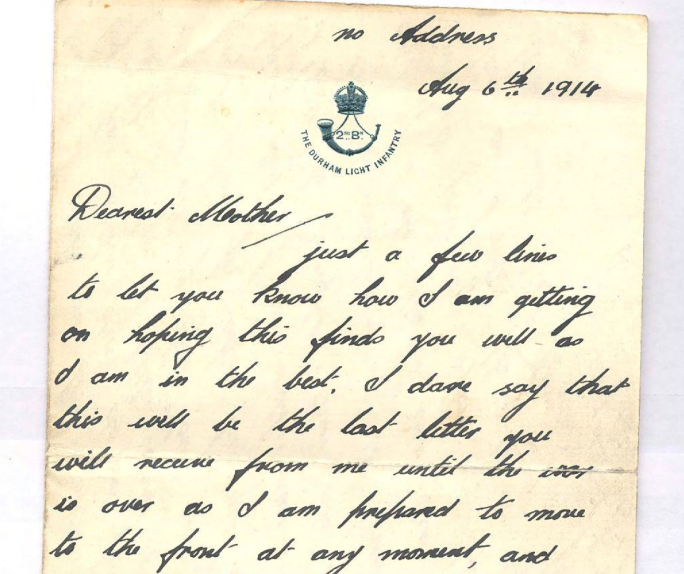 no Address
Aug 6th 1914
2ND BN
THE DURHAM LIGHT INFANTRY
Dearest Mother
just a few lines
to let you know how I am getting
on hoping this finds you well as
I am in the best, I dare say that
this will be the last letter you
will receive from me until the war
is over as I am prepared to move
to the front at any moment, and